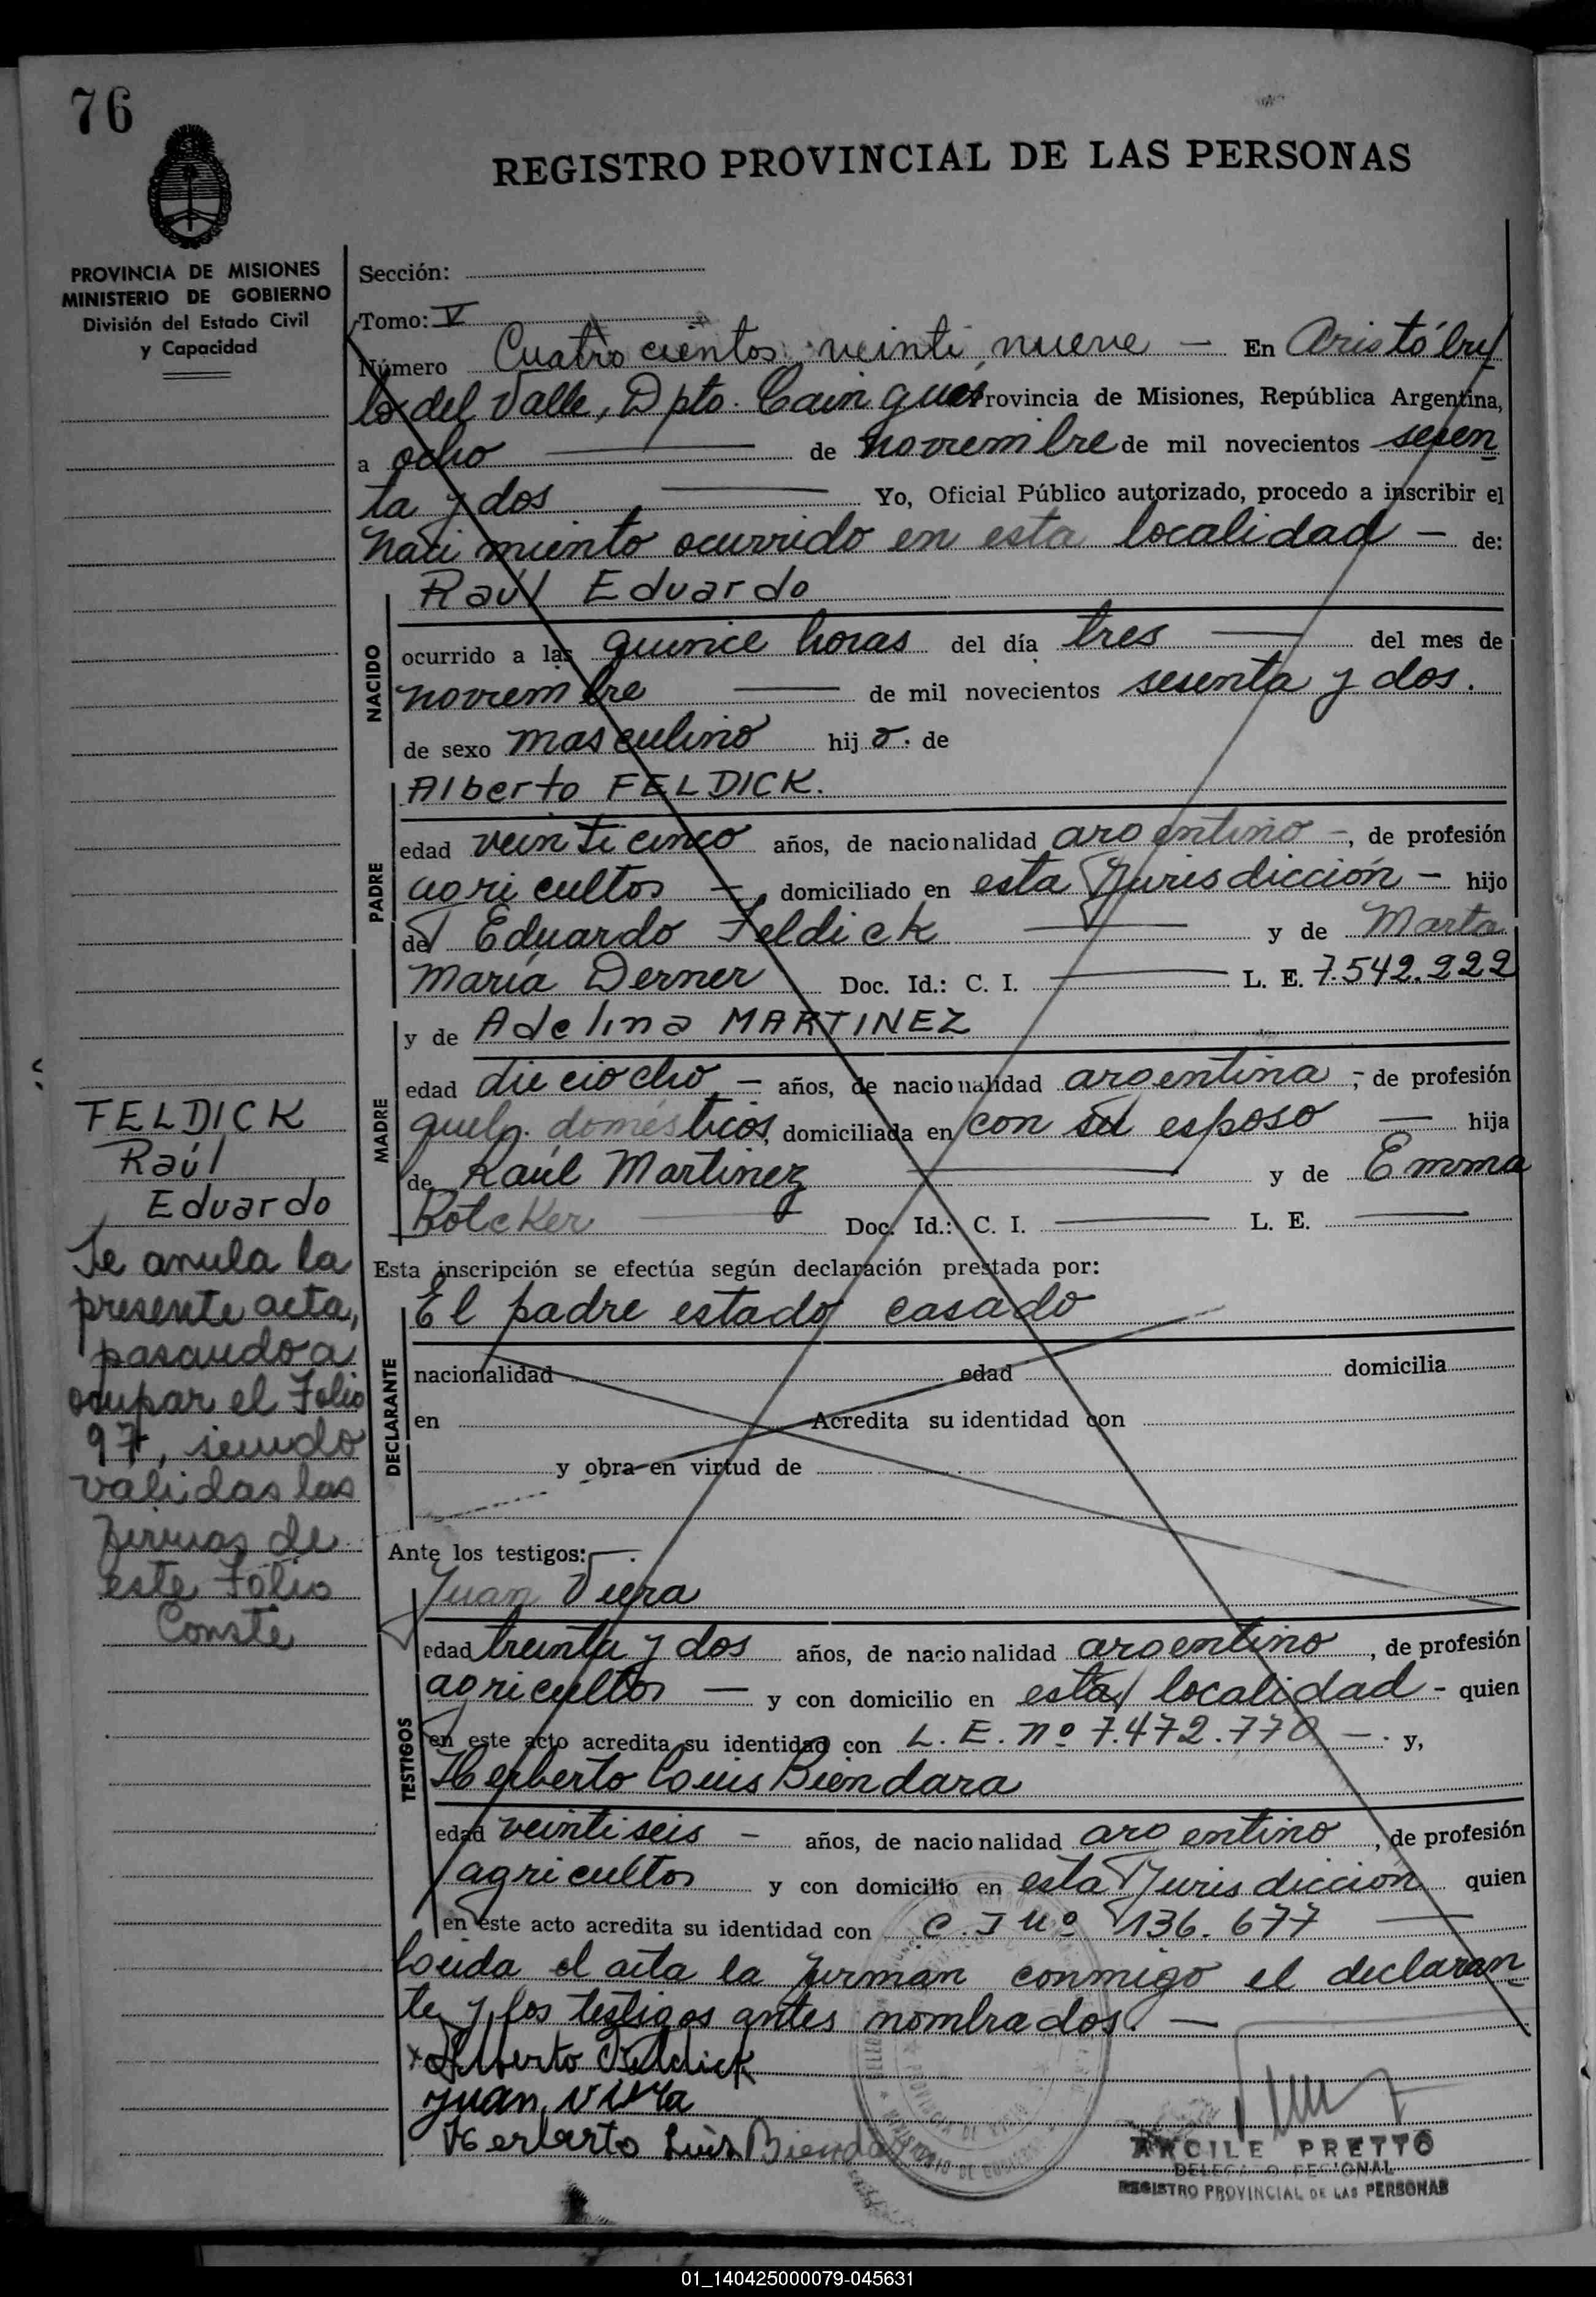 76
REGISTRO PROVINCIAL DE LAS PERSONAS
PROVINCIA DE MISIONES
MINISTERIO DE GOBIERNO
División del Estado Civil
y Capacidad
Sección:
Tomo: V
Número Cuatrocientos veinti nueve — En Aristóbu
lo del Valle, Dpto. Cainguás Provincia de Misiones, República Argentina,
a ocho — de noviembre de mil novecientos sesen
ta y dos — Yo, Oficial Público autorizado, procedo a inscribir el
nacimiento ocurrido en esta localidad — de:
Raúl Eduardo
NACIDO
ocurrido a las quince horas del día tres — del mes de
noviembre — de mil novecientos sesenta y dos.
de sexo masculino hijo. de
Alberto FELDICK.
PADRE
edad veinticinco años, de nacionalidad argentino -, de profesión
agricultor — domiciliado en esta Jurisdicción - hijo
de Eduardo Feldick — y de Marta
María Derner Doc. Id.: C. I. — L. E. 7.542.222
y de Adelina MARTINEZ
MADRE
edad dieciocho - años, de nacionalidad argentina, - de profesión
queh. domésticos, domiciliada en con su esposo — hija
de Raúl Martinez — y de Emma
Rotcker — Doc. Id.: C. I. — L. E. —
Esta inscripción se efectúa según declaración prestada por:
El padre estado casado
DECLARANTE
nacionalidad edad domicilia
en Acredita su identidad con
y obra en virtud de
Ante los testigos: —.
Juan Viera
TESTIGOS
edad treinta y dos años, de nacionalidad argentino, de profesión
agricultor — y con domicilio en esta localidad - quien
en este acto acredita su identidad con L. E. nº 7.472.770 —. y,
Herberto Louis Biendara
edad veintiseis - años, de nacionalidad argentino, de profesión
agricultor y con domicilio en esta Jurisdicción quien
en este acto acredita su identidad con C. I nº 136.677 —
Leida el acta la firman conmigo el declaran
te y los testigos antes nombrados. —
x Alberto Feldick
Juan Viera
Herberto Luis Biendara
ARCILE PRETTO
DELEGADO REGIONAL
REGISTRO PROVINCIAL DE LAS PERSONAS
FELDICK
Raúl
Eduardo
Se anula la
presente acta,
pasando a
ocupar el Folio
97, siendo
validas las
firmas de
este Folio
Conste
01_140425000079-045631